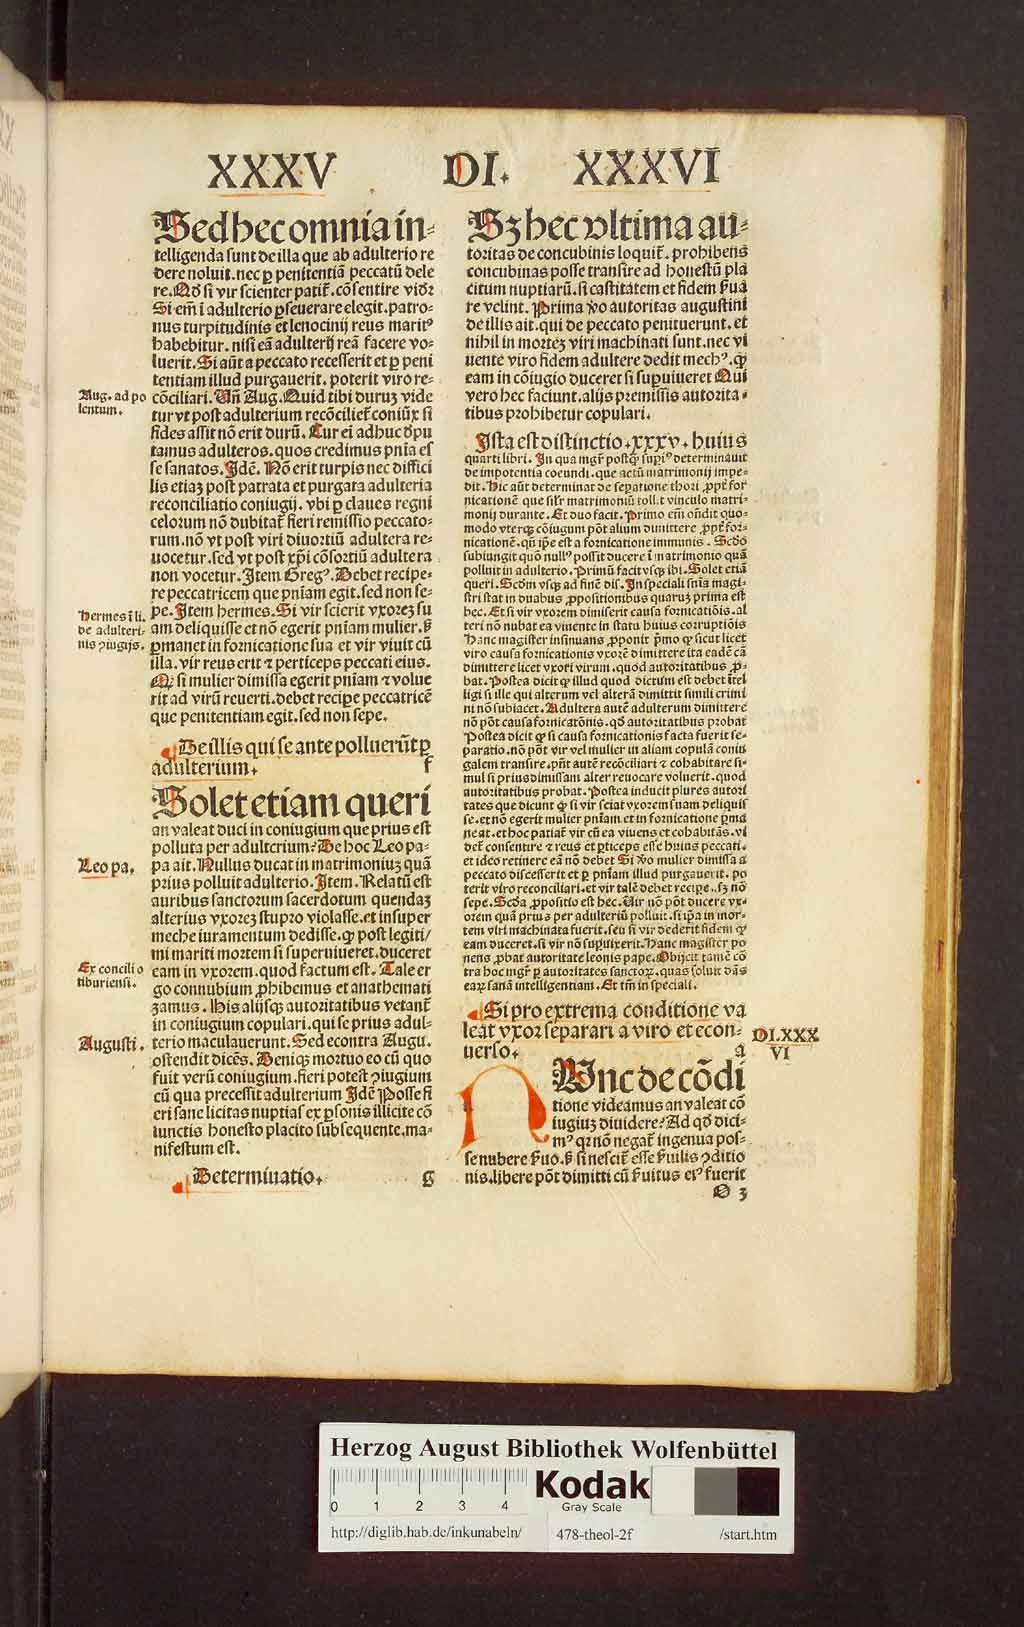 XXXV DI. XXXVI
Sed hec omnia in-
telligenda sunt de illa que ab adulterio re
dere noluit. nec ꝑ penitentiā peccatū dele
re. Qd̛ si vir scienter patit᷑. cōsentire vid᷑
Si em̄ ī adulterio ꝑseuerare elegit. patro-
nus turpitudinis et lenocinij reus maritꝰ
habebitur. nisi eā adulterij reā facere vo-
luerit. Si aūt a peccato recesserit et ꝑ peni
tentiam illud purgauerit. poterit viro re-
Aug. ad po
lentum.
cōciliari. Uñ Aug. Quid tibi duruꝫ vide
tur vt post adulterium recōciliet᷑ coniūx si
fides assit nō erit durū. Cur eī adhuc d̛pu
tamus adulteros. quos credimus pn̄ia es
se sanatos. Idē. Nō erit turpis nec diffici
lis etiaꝫ post patrata et purgata adulteria
reconciliatio coniugij. vbi ꝑ claues regni
celorum nō dubitat᷑ fieri remissio peccato-
rum. nō vt post viri diuortiū adultera re-
uocetur. sed vt post xp̄i cōsortiū adultera
non vocetur. Item Gregꝰ. Debet recipe-
re peccatricem que pn̄iam egit. sed non se-
Hermes ī li.
de adulteri-
nis ꝯiugijs.
pe. Item hermes. Si vir scierit vxoreꝫ su
am deliquisse et nō egerit pn̄iam mulier. ꝫ
ꝑmanet in fornicatione sua et vir viuit cū
illa. vir reus erit ⁊ perticeps peccati eius.
Qꝫ si mulier dimissa egerit pn̄iam ⁊ volue
rit ad virū reuerti. debet recipe peccatricē
que penitentiam egit. sed non sepe.
De illis qui se ante polluerūt ꝑ
adulterium. f
Solet etiam queri
an valeat duci in coniugium que prius est
polluta per adulterium? De hoc Leo pa-
Leo pa.
pa ait. Nullus ducat in matrimoniuꝫ quā
prius polluit adulterio. Item. Relatū est
auribus sanctorum sacerdotum quendaꝫ
alterius vxoreꝫ stupro violasse. et insuper
meche iuramentum dedisse. ꝙ post legiti/
mi mariti mortem si superuiueret. duceret
Ex concilio
tiburiensi.
eam in vxorem. quod factum est. Tale er
go connubium ꝓhibemus et anathemati
zamus. His alijsqꝫ autoritatibus vetant᷑
in coniugium copulari. qui se prius adul-
Augusti.
terio maculauerunt. Sed econtra Augu.
ostendit dicēs. Deniqꝫ mortuo eo cū quo
fuit verū coniugium. fieri potest ꝯiugium
cū qua precessit adulterium Idē Posse fi
eri sane licitas nuptias ex ꝑsonis illicite cō
iunctis honesto placito subsequente. ma-
nifestum est.
Determinatio. g
Sꝫ hec vltima au-
toritas de concubinis loquit᷑. prohibens
concubinas posse transire ad honestū pla
citum nuptiarū. si castitatem et fidem ẜua
re velint. Prima v̊o autoritas augustini
de illis ait. qui de peccato penituerunt. et
nihil in morteꝫ viri machinati sunt. nec vi
uente viro fidem adultere dedit mechꝰ. ꝙ
eam in cōiugio duceret si suꝑuiueret Qui
vero hec faciunt. alijs premissis autorita-
tibus prohibetur copulari.
Ista est distinctio. xxxv. huius
quarti libri. In qua mgr̄ postqꝫ supiꝰ determinauit
de impotentia coeundi. que actū matrimonij impe-
dit. hic aūt determinat de seꝑatione thori ꝓpt᷑ for
nicationē que silr̄ matrimoniū toll.t vinculo matri-
monij durante. Et duo facit. Primo em̄ on̄dit quo-
modo vterqꝫ cōiugum pōt alium dimittere ꝓpt᷑ for-
nicationē. qn̄ ip̄e est a fornicatione immunis. Scd̛o
subiungit quō nullꝰ possit ducere ī matrimonio quā
polluit in adulterio. Primū facit vsqꝫ ibi. Solet etiā
queri. Scd̛m vsqꝫ ad finē dis. In speciali sn̄ia magi-
stri stat in duabus ꝓpositionibus quaruꝫ prima est
hec. Et si vir vxorem dimiserit causa fornicatiōis. al
teri nō nubat ea viuente in statu huius corruptiōis
Hanc magister insinuans ꝓponit p̄mo ꝙ sicut licet
viro causa fornicationis vxorē dimittere ita eadē cā
dimittere licet vxori virum. quod autoritatibus ꝓ-
bat. Postea dicit ꝙ illud quod dictum est debet ītel
ligi si ille qui alterum vel alterā dimittit simili crimi
ni nō subiacet. Adultera autē adulterum dimittere
nō pōt causa fornicatōnis. qd̛ autoritatibus probat
Postea dicit ꝙ si causa fornicationis facta fuerit se-
paratio. nō pōt vir vel mulier in aliam copulā coniu
galem transire. pn̄t autē recōciliari ⁊ cohabitare si-
mul si prius dimissam alter reuocare voluerit. quod
autoritatibus probat. Postea inducit plures autori
tates que dicunt ꝙ si vir sciat vxorem suam deliquis
se. et nō egerit mulier pn̄iam et in fornicatione ꝑma
neat. et hoc patiat᷑ vir cū ea viuens et cohabitās. vi
det᷑ consentire ⁊ reus et ꝑticeps esse huius peccati.
et ideo retinere eā nō debet Si v̊o mulier dimissa a
peccato discesserit et ꝑ pn̄iam illud purgauerit. po
terit viro reconciliari. et vir talē debet recipe. sꝫ nō
sepe. Scd̛a ꝓpositio est hec. Uir nō pōt ducere vx-
orem quā prius per adulteriū polluit. si ip̄a in mor-
tem viri machinata fuerit. seu si vir dederit fidem ꝙ
eam duceret. si vir nō suꝑuixerit. Hanc magister po
nens ꝓbat autoritate leonis pape. Obijcit tamē cō
tra hoc mgr̄ ꝑ autoritates sanctoꝝ. quas soluit dās
eaꝝ sanā intelligentiam. Et tm̄ in speciali.
Si pro extrema conditione va
leat vxor separari a viro et econ-
uerso. a
DI. XXX
VI
NUnc de cōdi
tione videamus an valeat cō
iugiuꝫ diuidere? Ad qd̛ dici-
mꝰ qꝛ nō negat᷑ ingenua pos-
se nubere ẜuo. ꝫ si nescit᷑ esse ẜuilis ꝯditio
nis. libere pōt dimitti cū ẜuitus eiꝰ fuerit
O 3
Herzog August Bibliothek Wolfenbüttel
0 1 2 3 4
Kodak
Gray Scale
http://diglib.hab.de/inkunabeln/ 478-theol-2f /start.htm